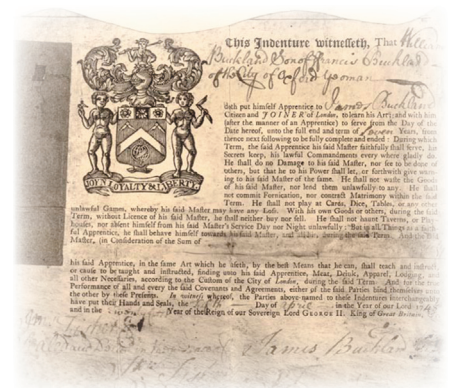 This Indenture witnesseth, That William
Buckland Son of Francis Buckland
of the City of Oxford Yeoman
doth put himself Apprentice to James Buckland
Citizen and JOINER of London, to learn his Art; and with him
(after the manner of an Apprentice) to serve from the Day of the
Date hereof, unto the full end and term of Seven Years, from
thence next following to be fully complete and ended: During which
Term, the said Apprentice his said Master faithfully shall serve, his
Secrets keep, his lawful Commandments every where gladly do.
He shall do no Damage to his said Master, nor see to be done of
others, but that he to his Power shall let, or forthwith give warn-
ing to his said Master of the same. He shall not waste the Goods
of his said Master, nor lend them unlawfully to any. He shall
not commit Fornication, nor contract Matrimony within the said
Term. He shall not play at Cards, Dice, Tables, or any other
JOIN LOYALTY & LIBERTY
unlawful Games, whereby his said Master may have any Loss. With his own Goods or others, during the said
Term, without Licence of his said Master, he shall neither buy nor sell. He shall not haunt Taverns, or Play-
houses, nor absent himself from his said Master's Service Day nor Night unlawfully: But in all Things as a faith-
ful Apprentice, he shall behave himself towards his said Master, and all his, during the said Term. And the said
Master, (in Consideration of the Sum of
his said Apprentice, in the same Art which he useth, by the best Means that he can, shall teach and instruct,
or cause to be taught and instructed, finding unto his said Apprentice, Meat, Drink, Apparel, Lodging, and
all other Necessaries, according to the Custom of the City of London, during the said Term. And for the true
Performance of all and every the said Covenants and Agreements, either of the said Parties bind themselves unto
the other by these Presents. In witness whereof, the Parties above-named to these Indentures interchangeably
have put their Hands and Seals, the Day of in the Year of our Lord
and in the Year of the Reign of our Sovereign Lord GEORGE II. King of Great Britain,
James Buckland